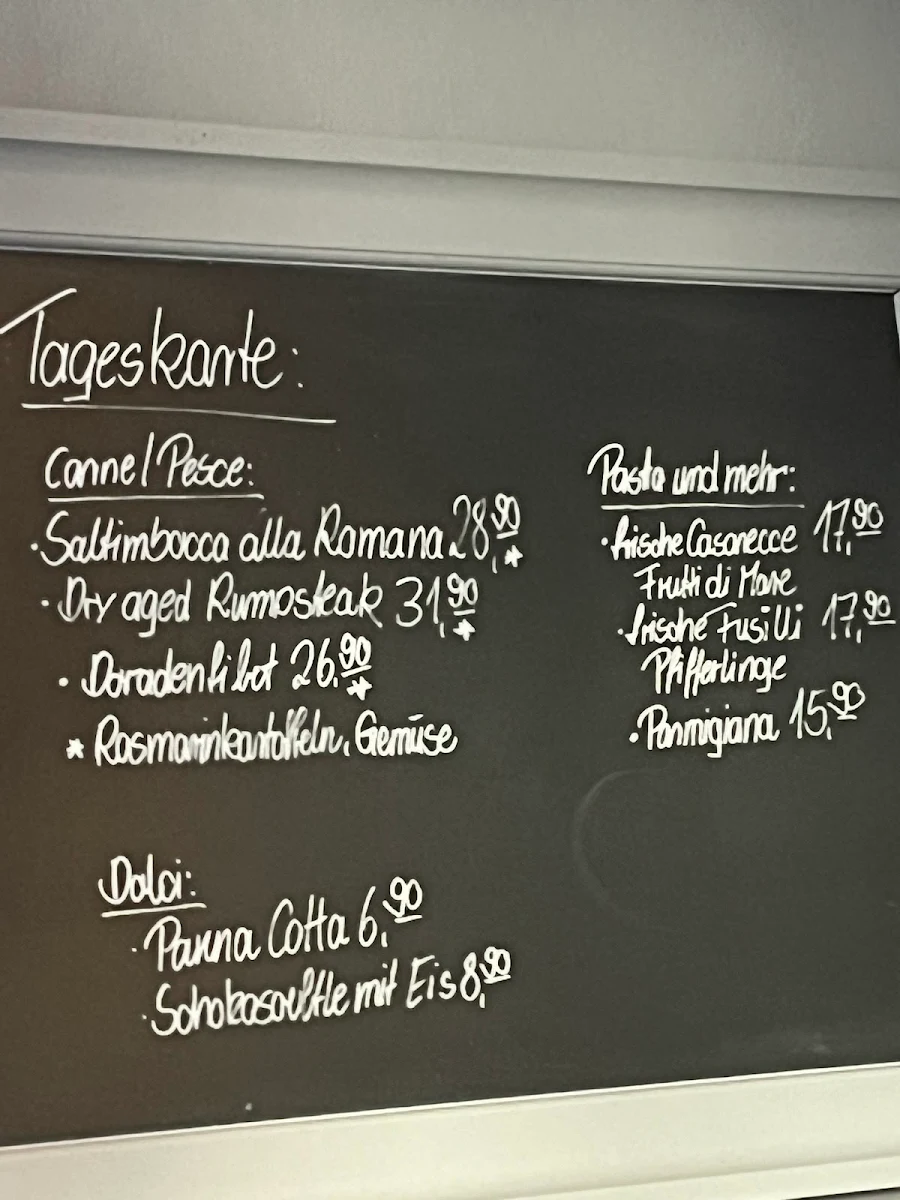 Tageskarte:
Carne/Pesce:
· Saltimbocca alla Romana 28,90 *
· Dry aged Rumpsteak 31,90 *
· Doradenfilet 26,90 *
* Rosmarinkartoffeln, Gemüse
Pasta und mehr:
· frische Casarecce 17,90
Frutti di Mare
· frische Fusilli 17,90
Pfifferlinge
· Parmigiana 15,90
Dolci:
· Panna Cotta 6,90
· Schokosouffle mit Eis 8,90